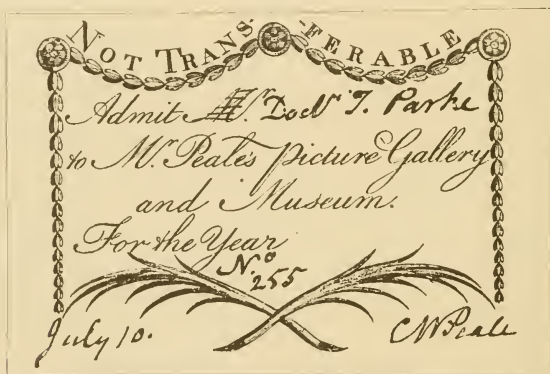 NOT TRANS- -FERABLE
Admit Mr. Docr T. Parke
to Mr. Peale's Picture Gallery
and Museum.
For the Year
No
255
July 10. CWPeale